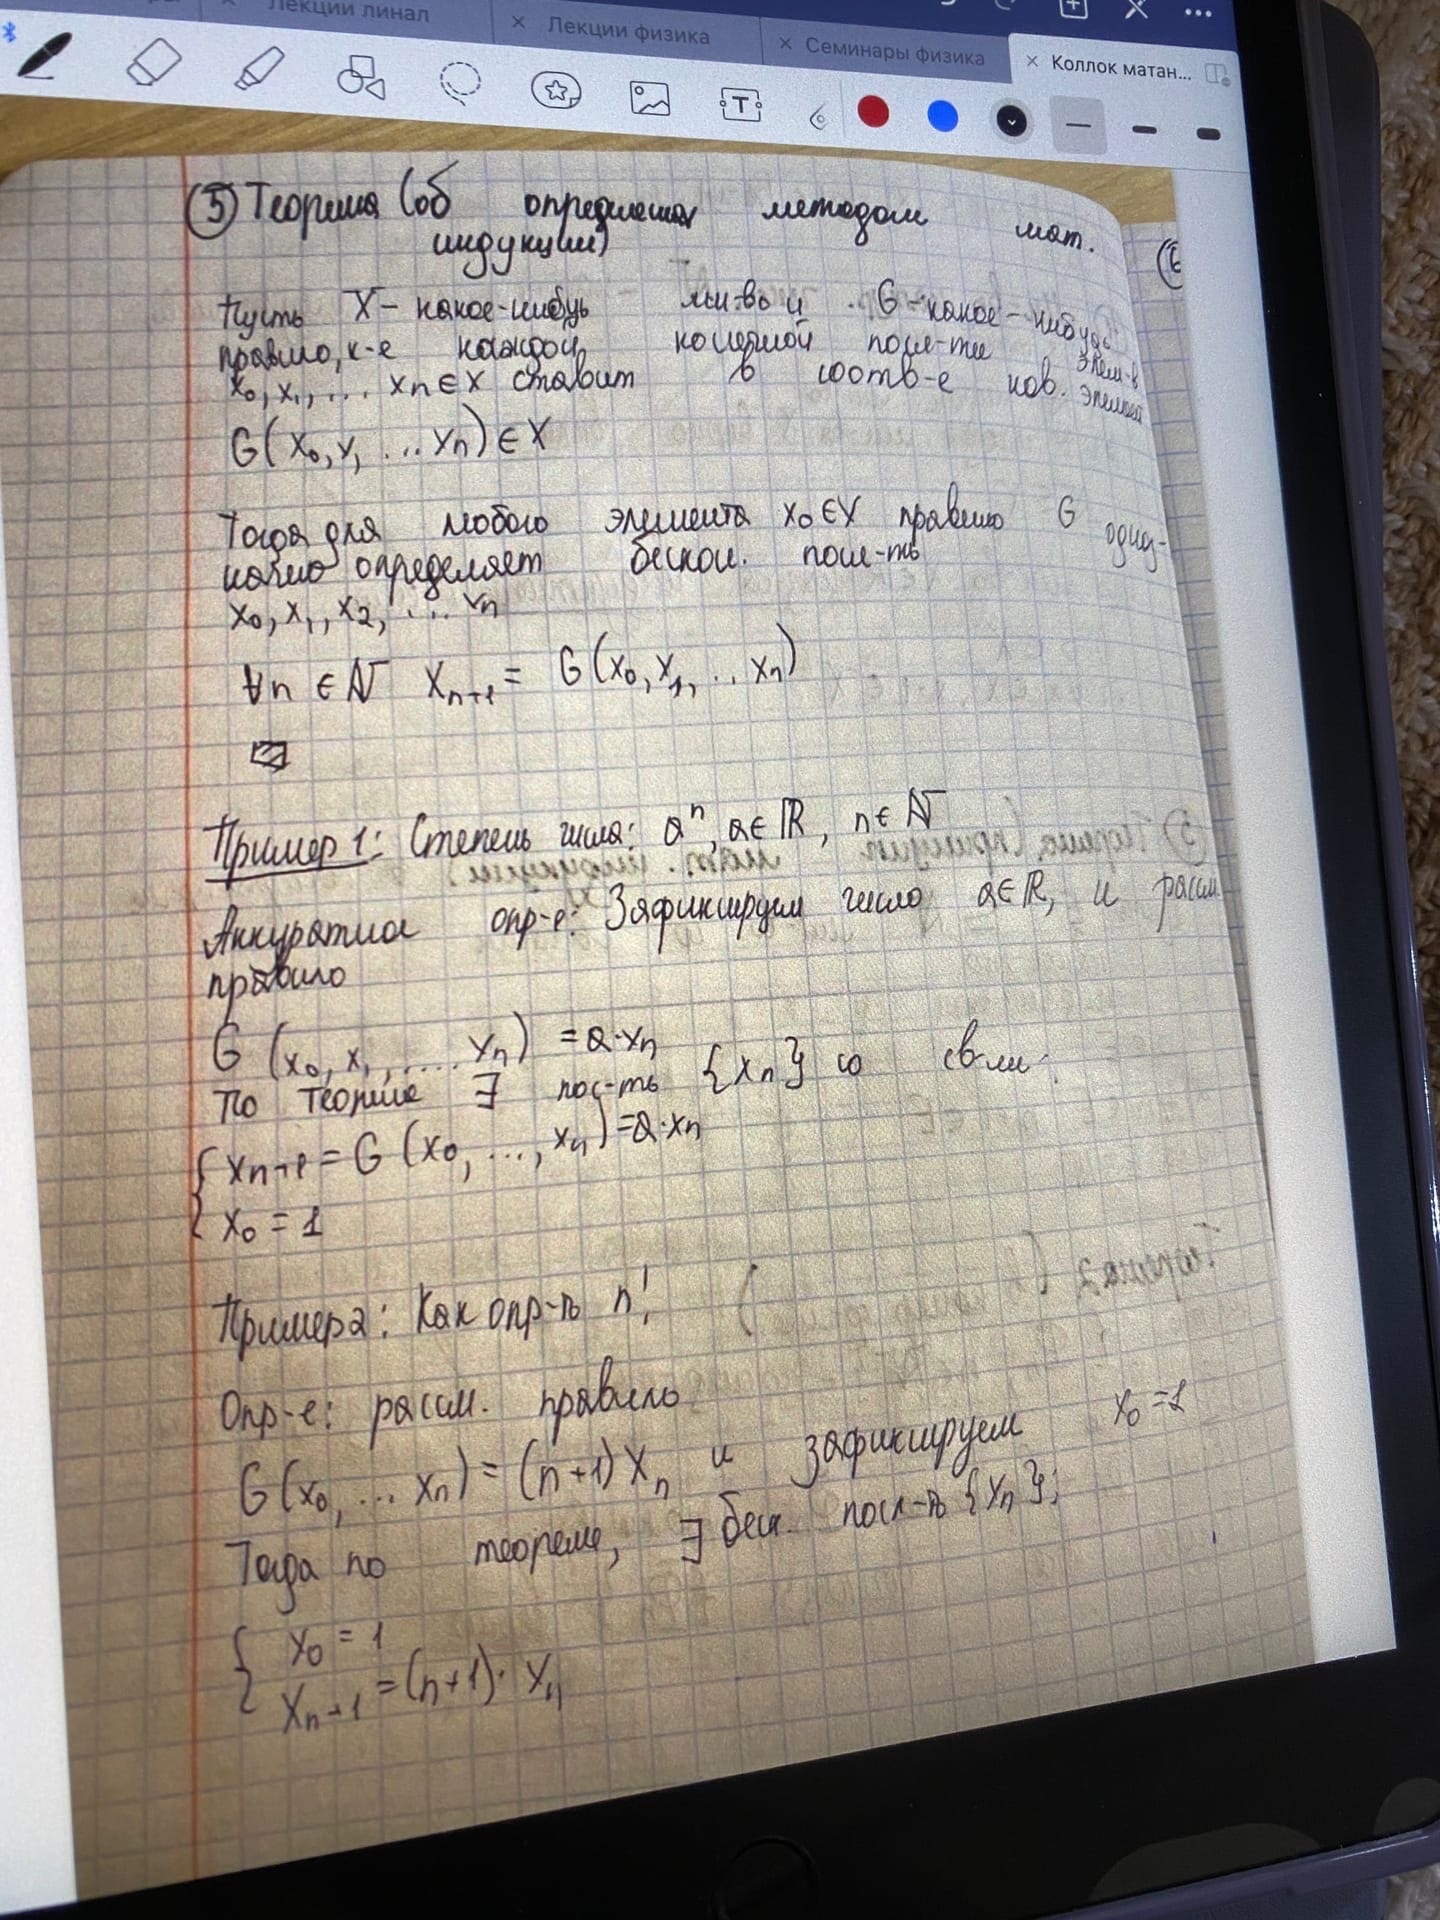 Лекции линал
× Лекции физика
× Семинары физика
× Коллок матан...
T
⑤ Теорема (об определении методом мат.
индукции)
Пусть X – какое-нибудь мн-во и G – какое-нибудь
правило, к-е каждой конечной посл-ти элем-в
x₀, x₁, ... xn ∈ X ставит в соотв-е нов. элемент
G(x₀, x₁ ... xn) ∈ X
Тогда для любого элемента x₀ ∈ X правило G одно-
значно определяет бескон. посл-ть
x₀, x₁, x₂, ... xn
∀n ∈ ℕ xₙ₊₁ = G(x₀, x₁, .. xn)
Пример 1: Степень числа: aⁿ, a ∈ ℝ, n ∈ ℕ
Аккуратное опр-е: Зафиксируем число a ∈ ℝ, и рассм.
правило
G (x₀, x₁, .... xn) = a·xn
По теореме ∃ пос-ть {xn} со св-ми:
{ xₙ₊₁ = G (x₀, ..., xn) = a·xn
x₀ = 1
Пример 2: Как опр-ть n!
Опр-е: рассм. правило
G(x₀, ... xn) = (n+1) xn и зафиксируем x₀ = 1
Тогда по теореме, ∃ беск. посл-ть {xn};
{ x₀ = 1
xₙ₊₁ = (n+1)· xn